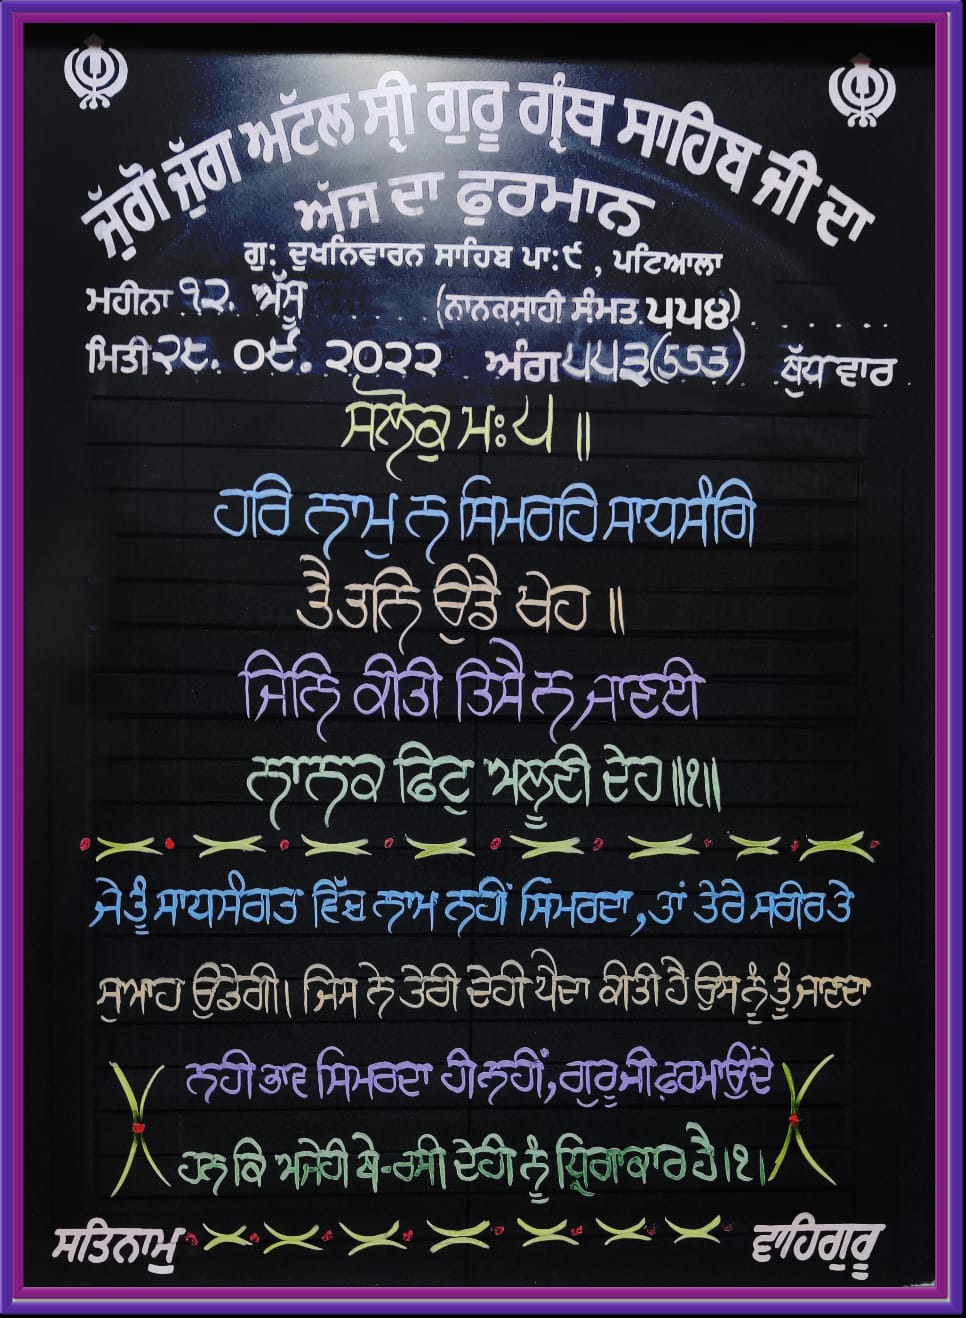 ਜੁੱਗੋ ਜੁੱਗ ਅਟੱਲ ਸ੍ਰੀ ਗੁਰੂ ਗ੍ਰੰਥ ਸਾਹਿਬ ਜੀ ਦਾ
ਅੱਜ ਦਾ ਫੁਰਮਾਨ
ਗੁ: ਦੁਖਨਿਵਾਰਨ ਸਾਹਿਬ ਪਾ:੯ , ਪਟਿਆਲਾ
ਮਹੀਨਾ ੧੨. ਅੱਸੂ (ਨਾਨਕਸ਼ਾਹੀ ਸੰਮਤ. ੫੫੪)
ਮਿਤੀ ੨੮. ੦੯. ੨੦੨੨ ਅੰਗ ੫੫੩(553) ਬੁੱਧ ਵਾਰ
ਸਲੋਕੁ ਮਃ ੫ ॥
ਹਰਿ ਨਾਮੁ ਨ ਸਿਮਰਹਿ ਸਾਧਸੰਗਿ
ਤੈ ਤਨਿ ਉਡੈ ਖੇਹ ॥
ਜਿਨਿ ਕੀਤੀ ਤਿਸੈ ਨ ਜਾਣਈ
ਨਾਨਕ ਫਿਟੁ ਅਲੂਣੀ ਦੇਹ ॥੧॥
ਜੇ ਤੂੰ ਸਾਧਸੰਗਤ ਵਿੱਚ ਨਾਮ ਨਹੀਂ ਸਿਮਰਦਾ, ਤਾਂ ਤੇਰੇ ਸਰੀਰ ਤੇ
ਸੁਆਹ ਉਡੇਗੀ। ਜਿਸ ਨੇ ਤੇਰੀ ਦੇਹੀ ਪੈਦਾ ਕੀਤੀ ਹੈ ਉਸ ਨੂੰ ਤੂੰ ਜਾਣਦਾ
ਨਹੀ ਭਾਵ ਸਿਮਰਦਾ ਹੀ ਨਹੀਂ, ਗੁਰੂ ਜੀ ਫ਼ਰਮਾਉਂਦੇ
ਹਨ ਕਿ ਅਜੇਹੀ ਬੇ-ਰਸੀ ਦੇਹੀ ਨੂੰ ਧ੍ਰਿਗਕਾਰ ਹੈ।੧।
ਸਤਿਨਾਮੁ ਵਾਹਿਗੁਰੂ